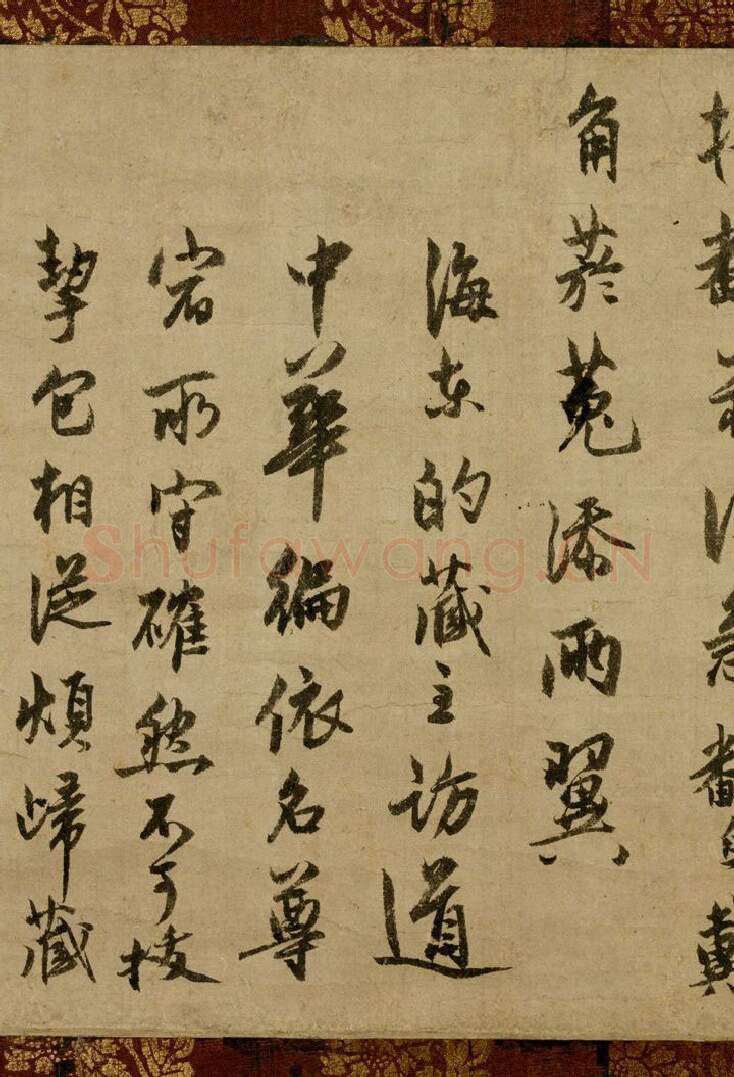 戴
角菸菟添兩翼
海東的藏主訪道
中華徧依名尊
宿所守確然不可拔
挈包相從煩歸藏
Shufawang.CN